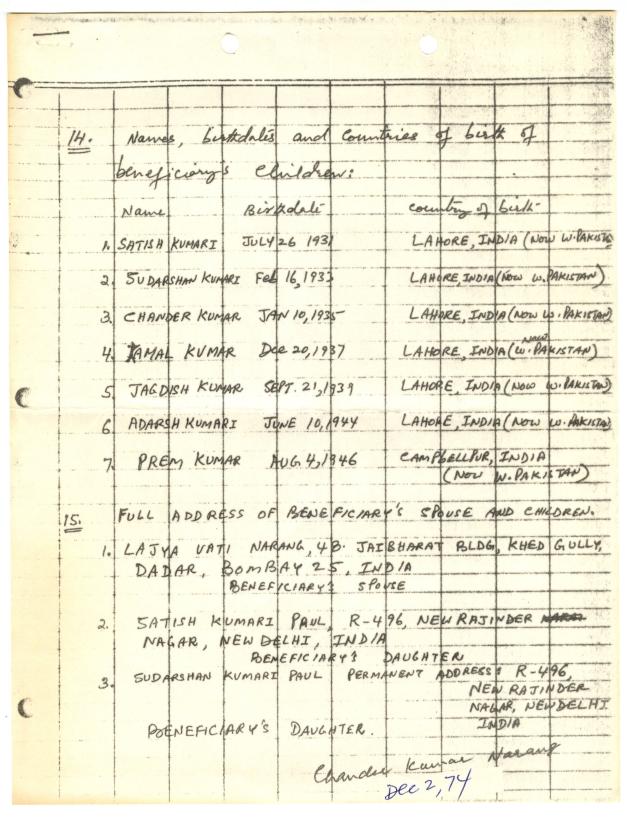 14. Names, birthdates and Countries of birth of
beneficiary's Children:
Name Birthdate Country of birth
1. SATISH KUMARI JULY 26 1931 LAHORE, INDIA (NOW W. PAKISTAN
2. SUDARSHAN KUMARI Feb 16, 1933 LAHORE, INDIA (NOW W. PAKISTAN)
3. CHANDER KUMAR JAN 10, 1935 LAHORE, INDIA (NOW W. PAKISTAN)
4. KUMAR Dec 20, 1937 LAHORE, INDIA (NOW W. PAKISTAN)
5. JAGDISH KUMAR SEPT. 21, 1939 LAHORE, INDIA (NOW W. PAKISTAN)
6. ADARSH KUMARI JUNE 10, 1944 LAHORE, INDIA (NOW W. PAKISTAN)
7. PREM KUMAR AUG 4, 1946 CAMPBELLPUR, INDIA
(NOW W. PAKISTAN)
15. FULL ADDRESS OF BENEFICIARY'S SPOUSE AND CHILDREN.
1. LAJYA VATI NARANG, 4B. JAIBHARAT BLDG, KHED GULLY,
DADAR, BOMBAY 25, INDIA
BENEFICIARY'S SPOUSE
2. SATISH KUMARI PAUL, R-496, NEW RAJINDER
NAGAR, NEW DELHI, INDIA
BENEFICIARY'S DAUGHTER
3. SUDARSHAN KUMARI PAUL PERMANENT ADDRESS: R-496,
NEW RAJINDER
NAGAR, NEW DELHI
INDIA
BENEFICIARY'S DAUGHTER.
Chander Kumar Narang
Dec 2, 74